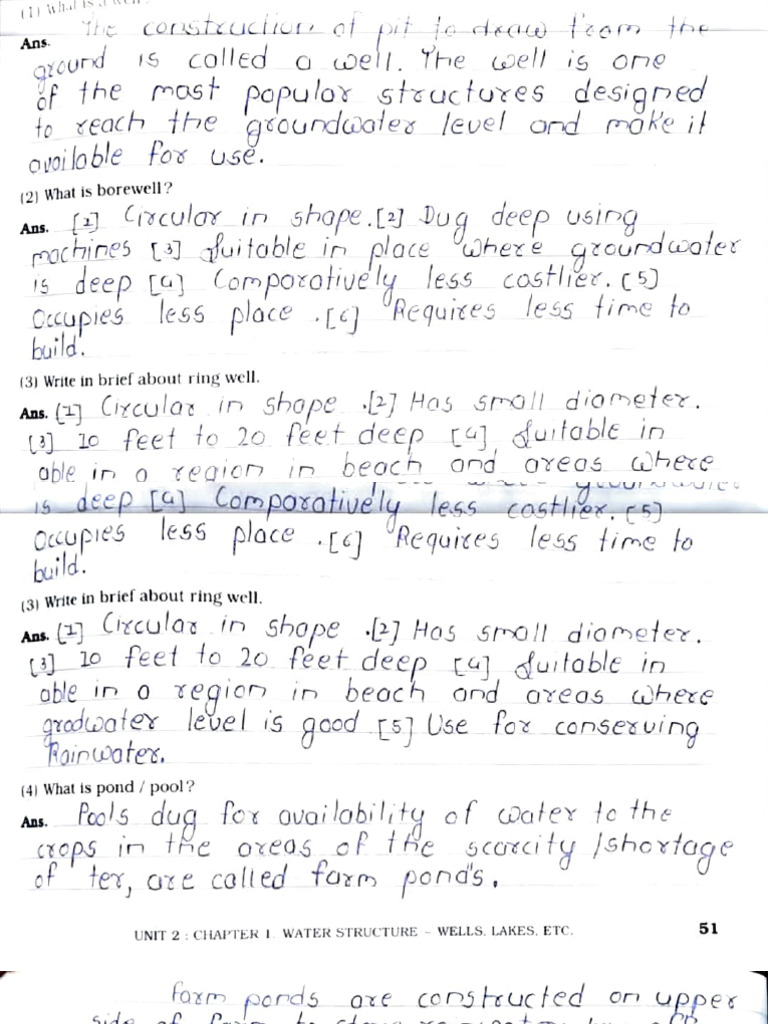 (1) What is a well
Ans. The construction of pit to draw from the
ground is called a well. The well is one
of the most popular structures designed
to reach the groundwater level and make it
available for use.
(2) What is borewell?
Ans. [1] Circular in shape. [2] Dug deep using
machines [3] Suitable in place where groundwater
is deep [4] Comparatively less costlier. [5]
Occupies less place . [6] Requires less time to
build.
(3) Write in brief about ring well.
Ans. [1] Circular in shape . [2] Has small diameter.
[3] 10 feet to 20 feet deep [4] Suitable in
able in a region in beach and areas where
is deep [4] Comparatively less costlier. [5]
Occupies less place . [6] Requires less time to
build.
(3) Write in brief about ring well.
Ans. [1] Circular in shape . [2] Has small diameter.
[3] 10 feet to 20 feet deep [4] Suitable in
able in a region in beach and areas where
gradwater level is good [5] Use for conserving
Rainwater.
(4) What is pond / pool?
Ans. Pools dug for availability of water to the
crops in the areas of the scarcity /shortage
of ter, are called farm pond's.
UNIT 2 : CHAPTER 1. WATER STRUCTURE – WELLS, LAKES, ETC. 51
farm ponds are constructed on upper
side of farm to